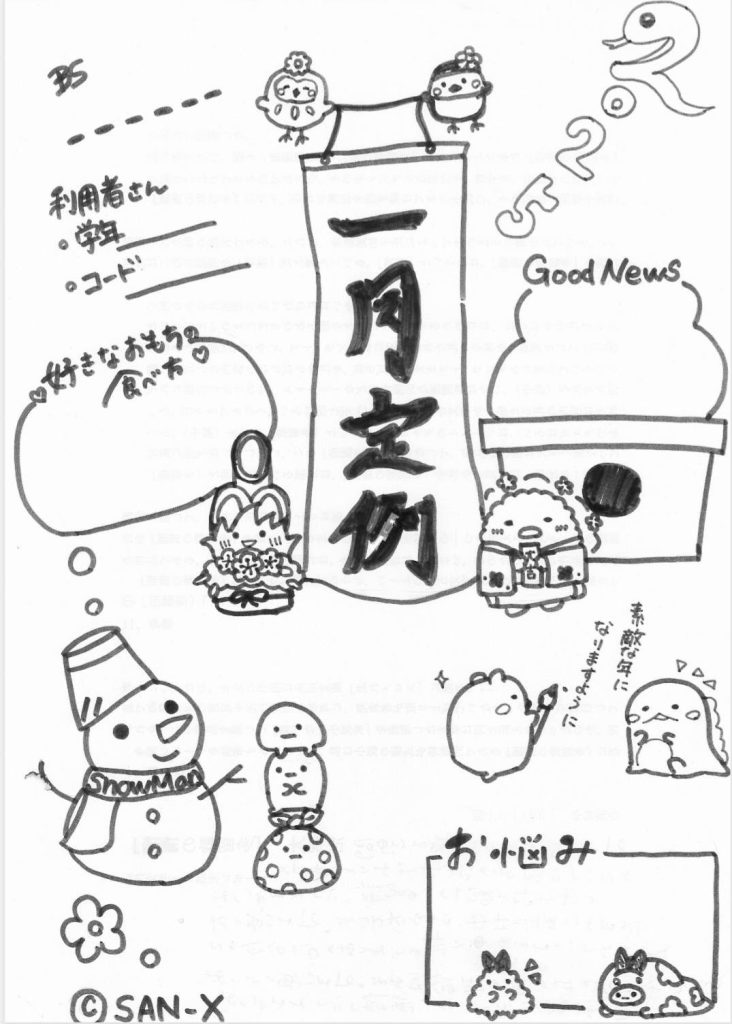 BS
2025
利用者さん
・学年
・コード
一月定例
Good News
♡好きなおもちの
食べ方♡
素敵な年に
なりますように
Snow Man
お悩み
©SAN-X